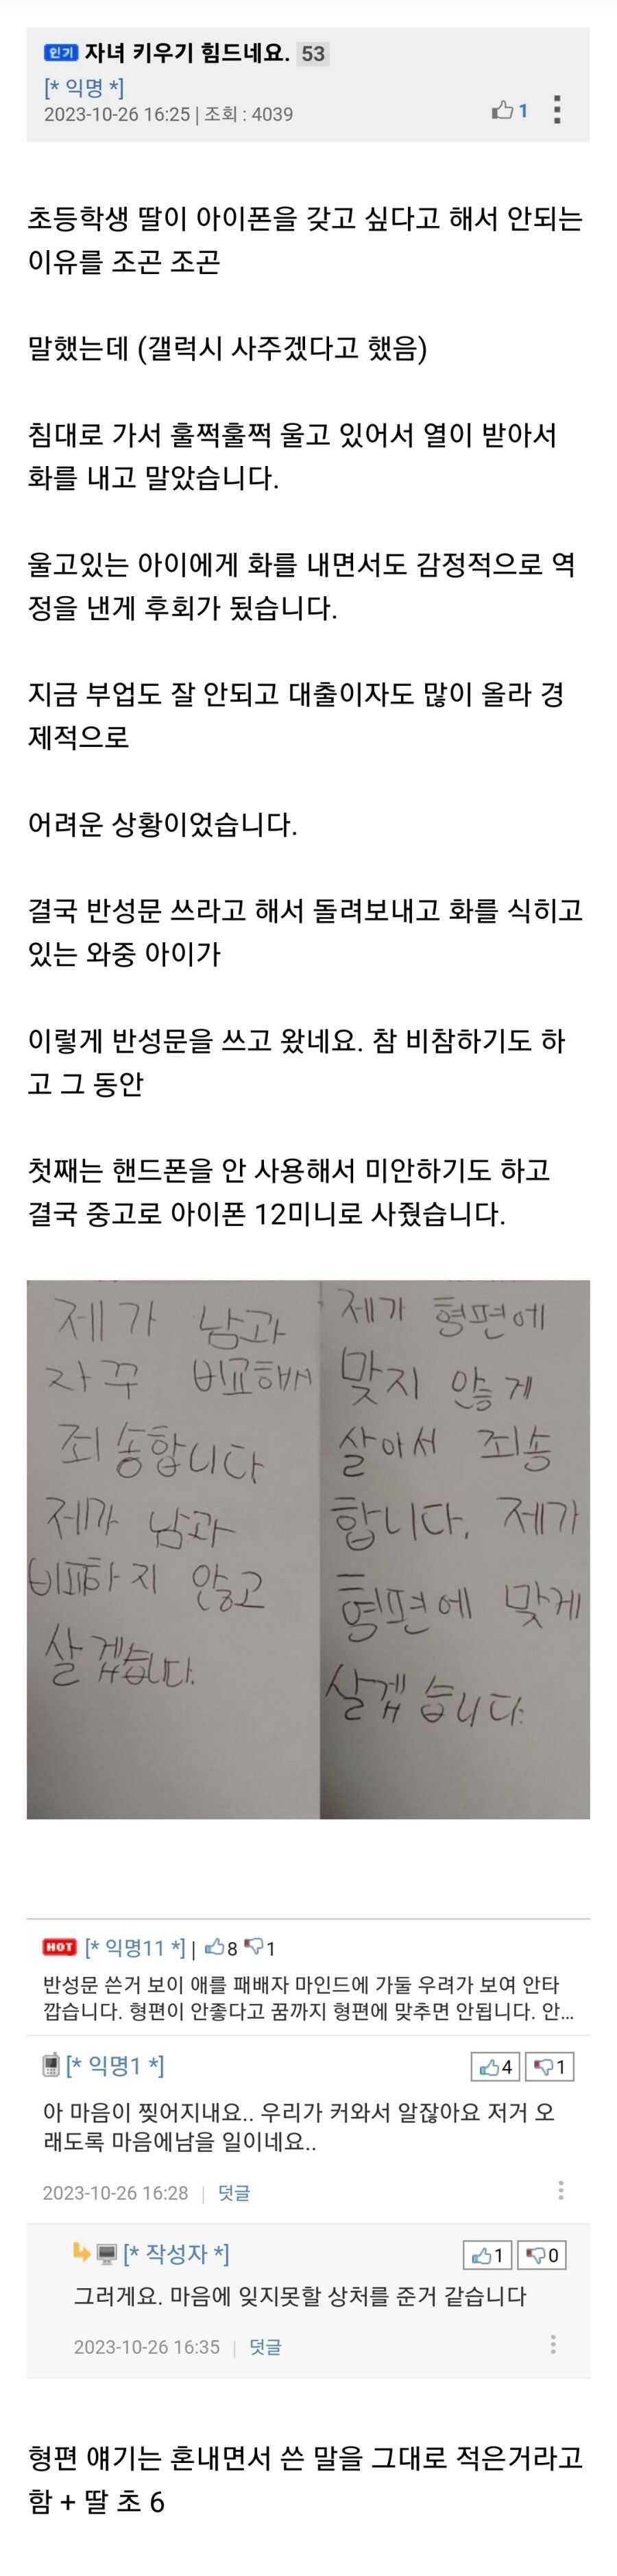 인기 자녀 키우기 힘드네요. 53
[* 익명 *]
2023-10-26 16:25 | 조회 : 4039
1
초등학생 딸이 아이폰을 갖고 싶다고 해서 안되는
이유를 조곤 조곤
말했는데 (갤럭시 사주겠다고 했음)
침대로 가서 훌쩍훌쩍 울고 있어서 열이 받아서
화를 내고 말았습니다.
울고있는 아이에게 화를 내면서도 감정적으로 역
정을 낸게 후회가 됬습니다.
지금 부업도 잘 안되고 대출이자도 많이 올라 경
제적으로
어려운 상황이었습니다.
결국 반성문 쓰라고 해서 돌려보내고 화를 식히고
있는 와중 아이가
이렇게 반성문을 쓰고 왔네요. 참 비참하기도 하
고 그 동안
첫째는 핸드폰을 안 사용해서 미안하기도 하고
결국 중고로 아이폰 12미니로 사줬습니다.
제가 남과
자꾸 비교해서
죄송합니다
제가 남과
비교하지 않고
살겠습니다.
제가 형편에
맞지 않게
살아서 죄송
합니다. 제가
형편에 맞게
살겠습니다.
HOT [* 익명11 *] | 8 1
반성문 쓴거 보이 애를 패배자 마인드에 가둘 우려가 보여 안타
깝습니다. 형편이 안좋다고 꿈까지 형편에 맞추면 안됩니다. 안...
[* 익명1 *] 4 1
아 마음이 찢어지내요.. 우리가 커와서 알잖아요 저거 오
래도록 마음에남을 일이네요..
2023-10-26 16:28 | 덧글
[* 작성자 *] 1 0
그러게요. 마음에 잊지못할 상처를 준거 같습니다
2023-10-26 16:35 | 덧글
형편 얘기는 혼내면서 쓴 말을 그대로 적은거라고
함 + 딸 초 6